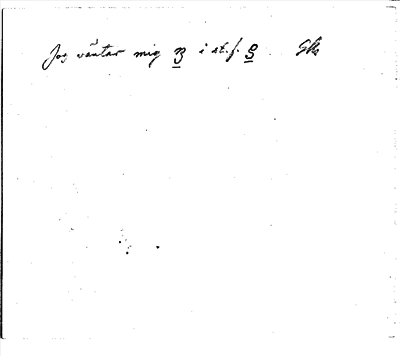 Jag väntar mig 3 i st. f. S